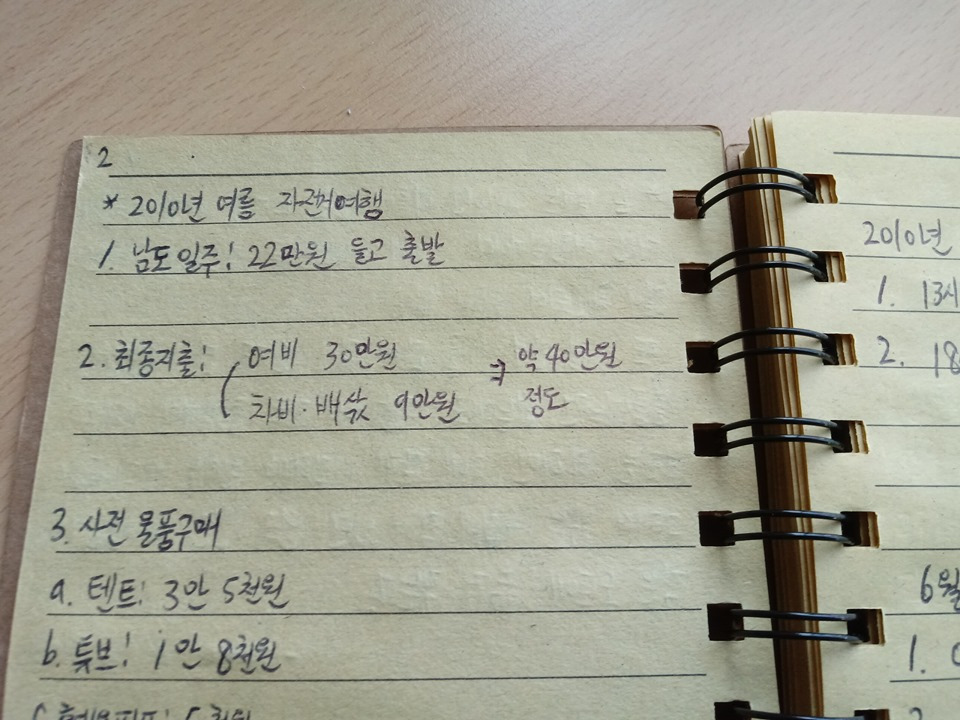 2
* 2010년 여름 자전거여행
1. 남도일주! 22만원 들고 출발
2. 최종지출! 여비 30만원 ⇒ 약 40만원
차비·배삯 9만원 정도
3. 사전 물품구매
a. 텐트! 3만 5천원
b. 튜브! 1만 8천원
2010년
1. 13시
2. 18
6월
1.